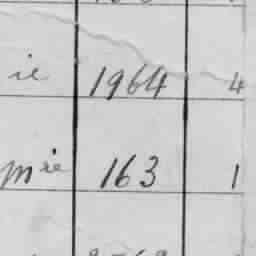 ie 1964 4
mre 163 1